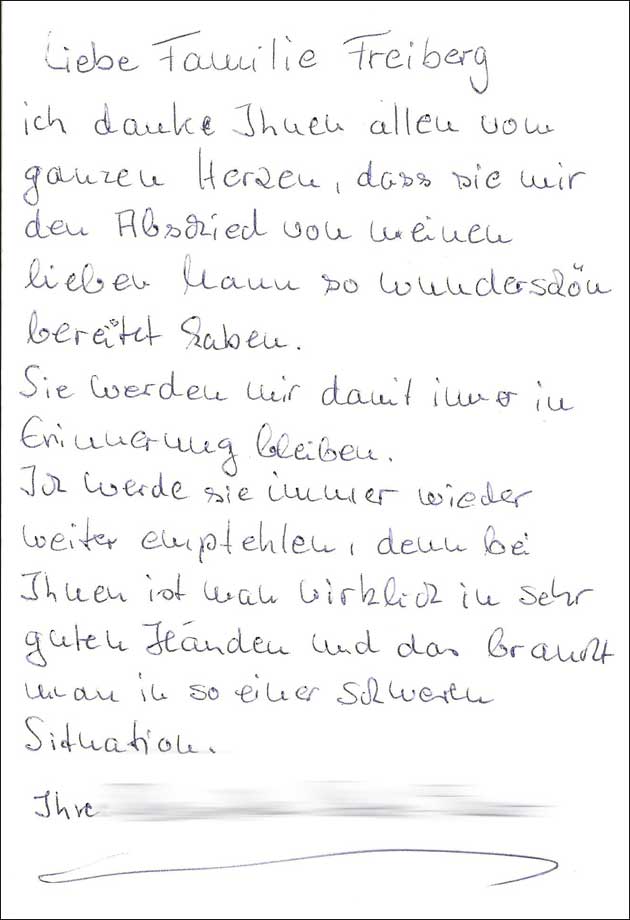 Liebe Familie Freiberg
ich danke Ihnen allen vom
ganzen Herzen, dass sie mir
den Abschied von meinen
lieben Mann so wunderschön
bereitet haben.
Sie werden mir damit immer in
Erinnerung bleiben.
Ich werde sie immer wieder
weiter empfehlen, denn bei
Ihnen ist man wirklich in sehr
guten Händen und das braucht
man in so einer schweren
Situation.
Ihre